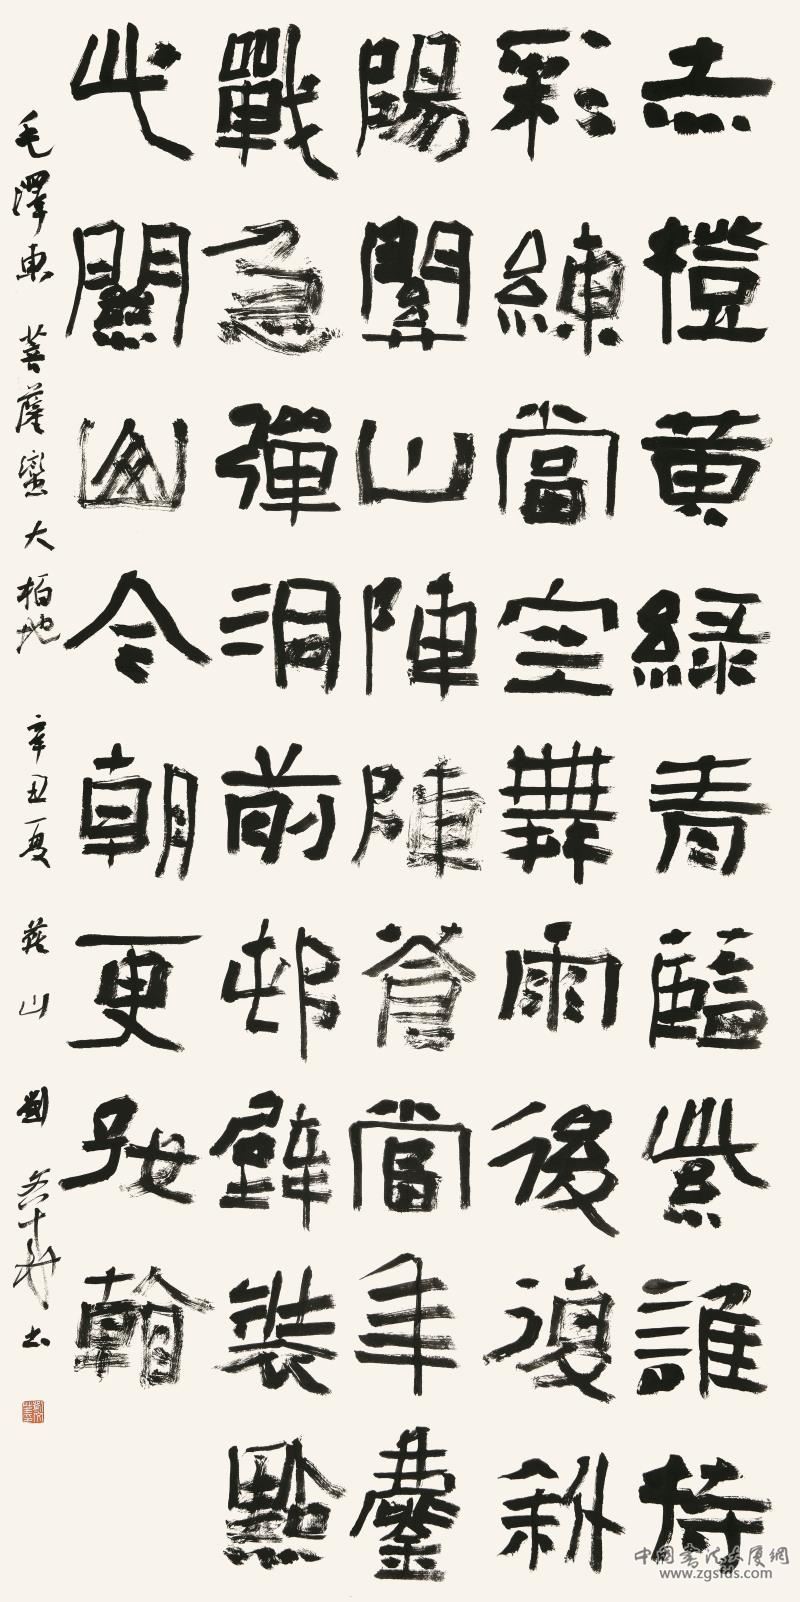 赤橙黃綠青藍紫誰持
彩練當空舞雨後復斜
陽關山陣陣蒼當年鏖
戰急彈洞前邨壁裝點
此關山今朝更好看
毛澤東 菩薩蠻 大柏地 辛丑夏 蒼山 劉 书
中国书法大厦網
www.zgsfds.com